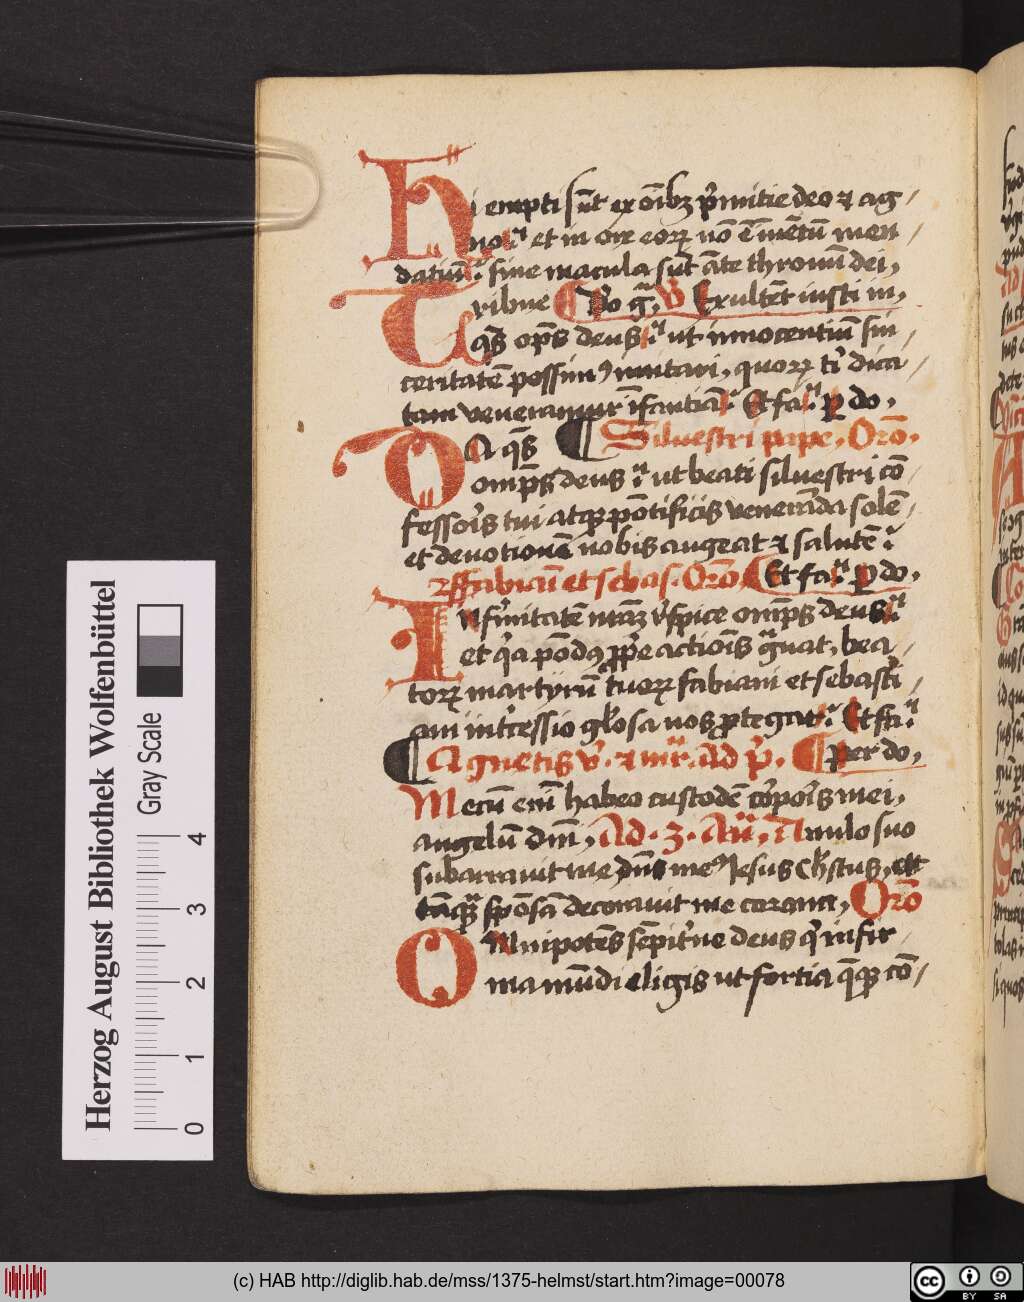 Hii empti sūt ex oībꝫ p̄mitie deo ⁊ ag-
no et in ore eorꝝ nō ē inuētū men
daciū sine macula sūt āte thronū dei,
Tribue Deo gr̄a, V Exultēt iusti in,
q̄s om̄ps deus ut innocentiū sin
ceritatē possimꝰ imitari, quorꝝ ti dica
tam veneramur īfantiā Et fa ꝑ do,
DA q̄s Siluestri pape, Orō.
om̄ps deus ut beati siluestri cō
fessoris tui atqꝫ pōtificis veneranda solē
et deuotionē nobis augeat ⁊ salutē
Fabiani et sebas. Orō Et fa ꝑ do,
Infirmitatē nr̄aꝫ respice om̄ps deus
et q̄a pōdꝰ ꝓprie actiōis grauat, bea
torꝝ martyrū tuorꝝ fabiani et sebasti
ani int̄cessio gl̄osa nos ꝓtegat Et fa
Agnetis v̄. ⁊ mr̄. Ad p̄. per do,
Mecū enī habeo custodē corporis mei,
angelū dn̄i, Ad. 3. An̄, Anulo suo
subarrauit me dn̄s meꝰ Jesus Chr̄stus, et
tāqꝫ spōsā decorauit me corona, Orō
Omnipotēs sēpit̄ne deus q̄ infir
ma mūdi eligis ut fortia q̄qꝫ cō
Herzog August Bibliothek Wolfenbüttel
Gray Scale
0 1 2 3 4
(c) HAB http://diglib.hab.de/mss/1375-helmst/start.htm?image=00078
cc BY SA